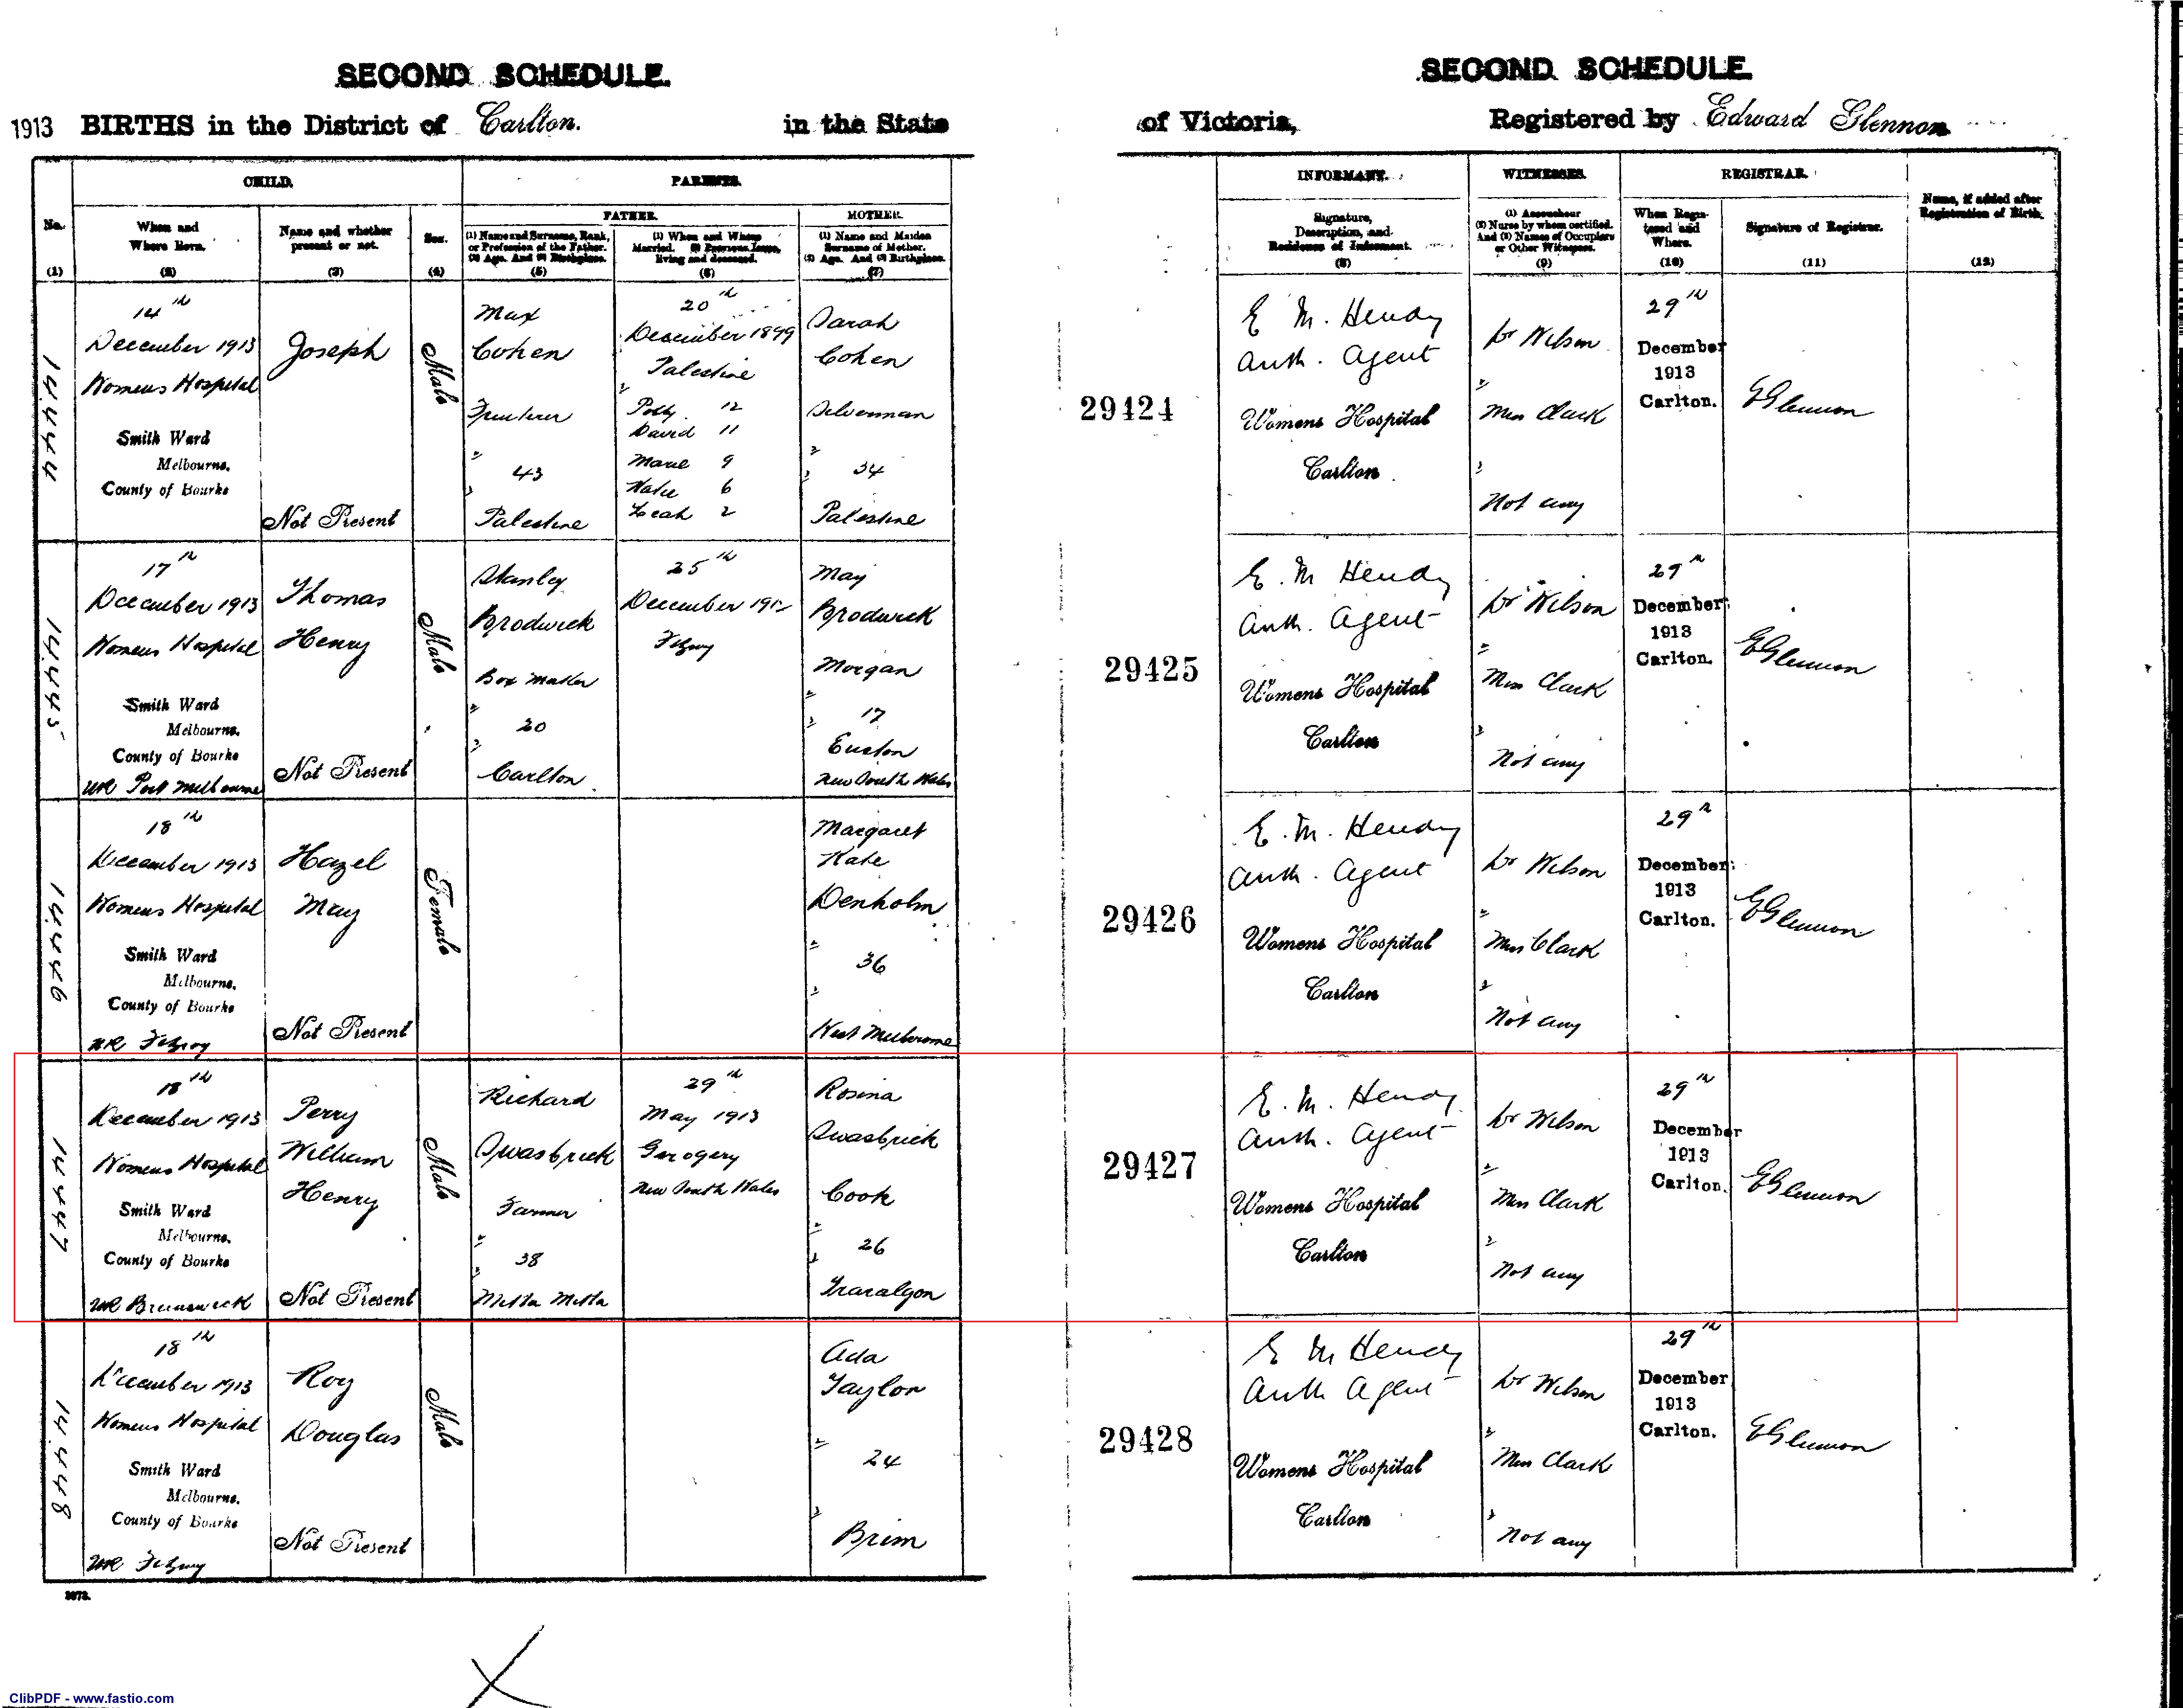 SECOND SCHEDULE.
1913 BIRTHS in the District of Carlton. in the State
CHILD. PARENTS.
FATHER. MOTHER.
No. When and Where Born. Name and whether present or not. Sex. (1) Name and Surname, Rank, or Profession of the Father. (2) Age. And (3) Birthplace. (1) When and Where Married. (2) Previous Issue, living and deceased. (1) Name and Maiden Surname of Mother. (2) Age. And (3) Birthplace.
(1) (2) (3) (4) (5) (6) (7)
14444
14th
December 1913
Womens Hospital
Smith Ward
Melbourne.
County of Bourke
Joseph
Not Present
Male
Max
Cohen
Fruiterer
43
Palestine
20th
December 1899
Palestine
Polly 12
David 11
Marie 9
Katie 6
Leah 2
Sarah
Cohen
Silverman
34
Palestine
14445
17th
December 1913
Womens Hospital
Smith Ward
Melbourne.
County of Bourke
UR Port Melbourne
Thomas
Henry
Not Present
Male
Stanley
Brodwick
Box Maker
20
Carlton
25th
December 1912
Fitzroy
May
Brodwick
Morgan
17
Euston
New South Wales
14446
18th
December 1913
Womens Hospital
Smith Ward
Melbourne.
County of Bourke
UR Fitzroy
Hazel
May
Not Present
Female
Margaret
Kate
Denholm
36
West Melbourne
14447
18th
December 1913
Womens Hospital
Smith Ward
Melbourne.
County of Bourke
UR Brunswick
Perry
William
Henry
Not Present
Male
Richard
Swasbrick
Farmer
38
Mitta Mitta
29th
May 1913
Gerogery
New South Wales
Rosina
Swasbrick
Cook
26
Traralgon
14448
18th
December 1913
Womens Hospital
Smith Ward
Melbourne.
County of Bourke
UR Fitzroy
Roy
Douglas
Not Present
Male
Ada
Taylor
24
Brim
3873.
SECOND SCHEDULE.
of Victoria, Registered by Edward Glennon
INFORMANT. WITNESSES. REGISTRAR.
Signature, Description, and Residence of Informant. (1) Accoucheur (2) Nurse by whom certified. And (3) Names of Occupiers or Other Witnesses. When Registered and Where. Signature of Registrar. Name, if added after Registration of Birth.
(8) (9) (10) (11) (12)
29424
E M. Hendy
Auth. Agent
Womens Hospital
Carlton
Dr Wilson
Miss Clark
Not any
29th
December
1913
Carlton.
EGlennon
29425
E. M Hendy
Auth. Agent
Womens Hospital
Carlton
Dr Wilson
Miss Clark
Not any
29th
December
1913
Carlton.
EGlennon
29426
E. M. Hendy
Auth. Agent
Womens Hospital
Carlton
Dr Wilson
Miss Clark
Not any
29th
December
1913
Carlton.
EGlennon
29427
E. M. Hendy
Auth. Agent
Womens Hospital
Carlton
Dr Wilson
Miss Clark
Not any
29th
December
1913
Carlton.
EGlennon
29428
E M Hendy
Auth Agent
Womens Hospital
Carlton
Dr Wilson
Miss Clark
Not any
29th
December
1913
Carlton.
EGlennon
ClibPDF - www.fastio.com